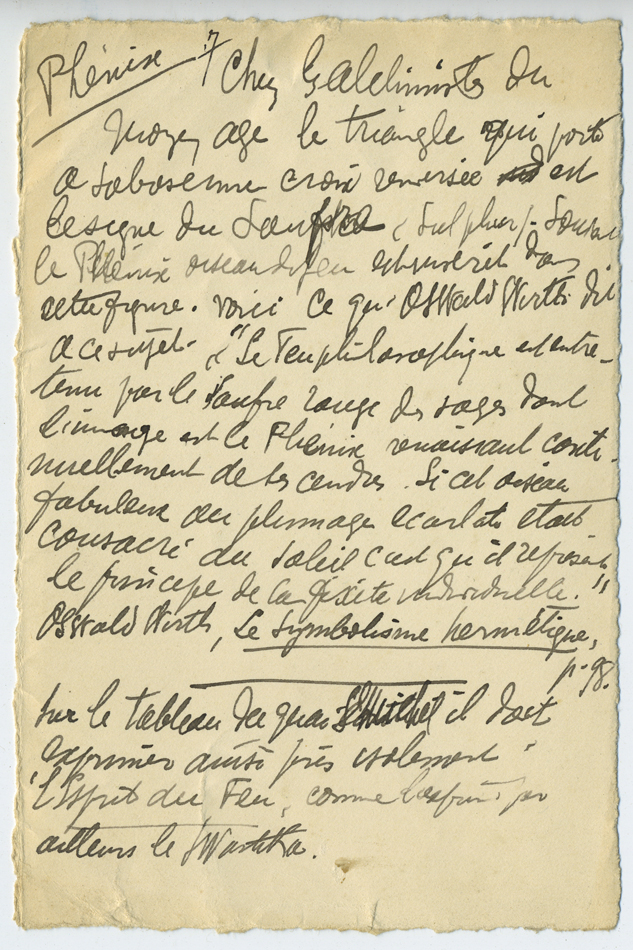 Phénix 7 Chez les alchimistes du
Moyen age le triangle qui porte
a sa base une croix renversée est
le signe du Soufre (Sulphur). Souvent
le Phénix oiseau du feu est inscrit dans
cette figure. Voici ce qu'Oswald Wirth dit
a ce sujet. "Le Feu philosophique est entre-
tenu par le soufre rouge des sages dont
l'image est le Phénix renaissant conti-
nuellement de ses cendres. Si cet oiseau
fabuleux au plumage ecarlate etait
consacré au soleil c'est qu'il représente
le principe de la fixité individuelle."
Oswald Wirth, Le Symbolisme hermétique,
p. 98.
Sur le tableau de il doit
exprimer ainsi pris isolement
l'Esprit du Feu, comme l'exprime par
ailleurs le Swastika.